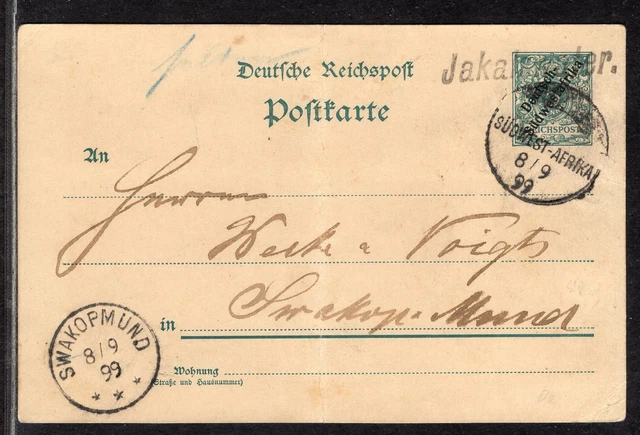 Deutsche Reichspost
Postkarte
Deutsch-
Südwest-Afrika
REICHSPOST
SÜDWEST-AFRIKA
8/9
99
An
Herren
Wecke & Voigts
in Swakop-Mund
SWAKOPMUND
8/9
99
* * *
Wohnung
(Straße und Hausnummer)